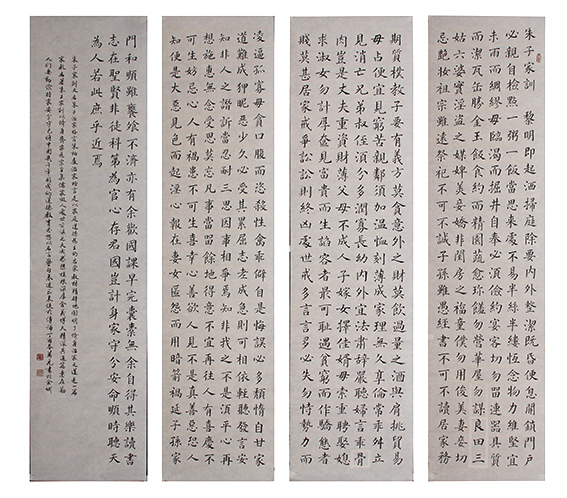 朱子家訓 黎明即起洒掃庭除要內外整潔既昏便息關鎖門戶
必親自檢點一粥一飯當思來處不易半絲半縷恆念物力維堅宜
未雨而綢繆毋臨渴而掘井自奉必須儉約宴客切勿留連器具質
而潔瓦缶勝金玉飲食約而精園蔬愈珍饈勿營華屋勿謀良田三
姑六婆實淫盜之媒婢美妾嬌非閨房之福童僕勿用俊美妻妾切
忌艷妝祖宗雖遠祭祀不可不誠子孫雖愚經書不可不讀居家務
期質樸教子要有義方莫貪意外之財莫飲過量之酒與肩挑貿易
毋占便宜見窮苦親鄰須加溫恤刻薄成家理無久享倫常乖舛立
見消亡兄弟叔侄須分多潤寡長幼內外宜法肅辭嚴聽婦言乖骨
肉豈是丈夫重資財薄父母不成人子嫁女擇佳婿毋索重聘娶媳
求淑女勿計厚奩見富貴而生諂容者最可恥遇貧窮而作驕態者
賤莫甚居家戒爭訟訟則終凶處世戒多言言多必失勿恃勢力而
凌逼孤寡毋貪口腹而恣殺牲禽乖僻自是悔誤必多頹惰自甘家
道難成狎昵惡少久必受其累屈志老成急則可相依輕聽發言安
知非人之譖訴當忍耐三思因事相爭焉知非我之不是須平心再
想施惠無念受恩莫忘凡事當留餘地得意不宜再往人有喜慶不
可生妒忌心人有禍患不可生喜幸心善欲人見不是真善惡恐人
知便是大惡見色而起淫心報在妻女匿怨而用暗箭禍延子孫家
門和順雖饔飧不濟亦有余歡國課早完囊橐無余自得其樂讀書
志在聖賢非徒科第為官心存君國豈計身家守分安命順時聽天
為人若此庶乎近焉